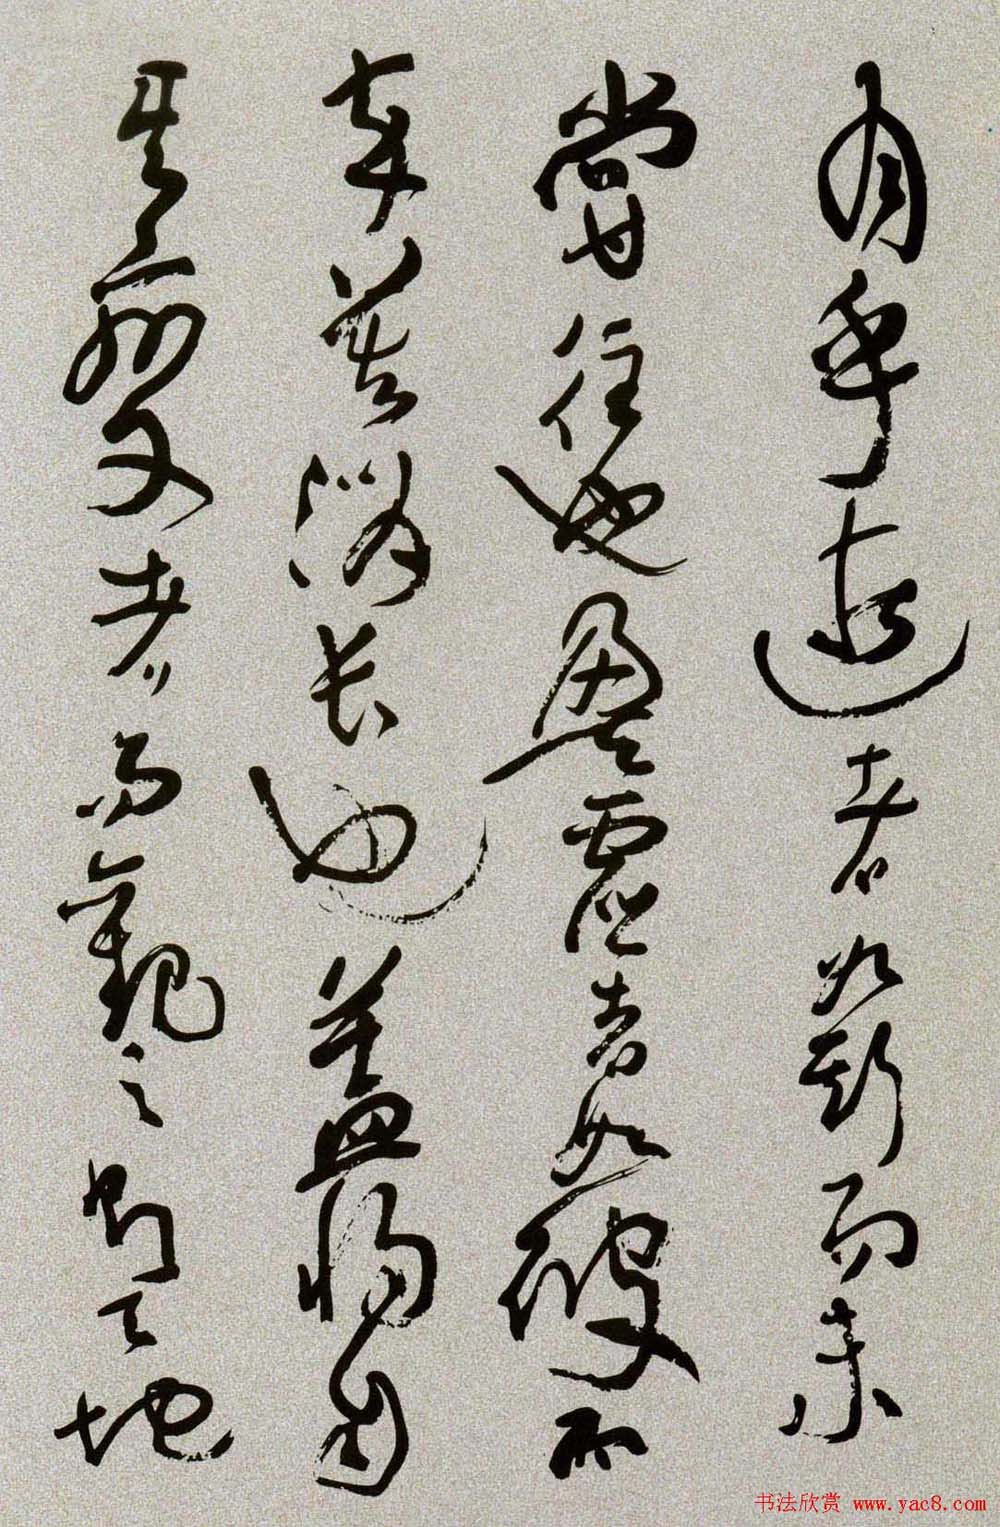 月乎逝者如斯而未
嘗往也盈虛者如彼而
卒莫消長也蓋將自
其變者而觀之則天地
书法欣赏 www.yac8.com